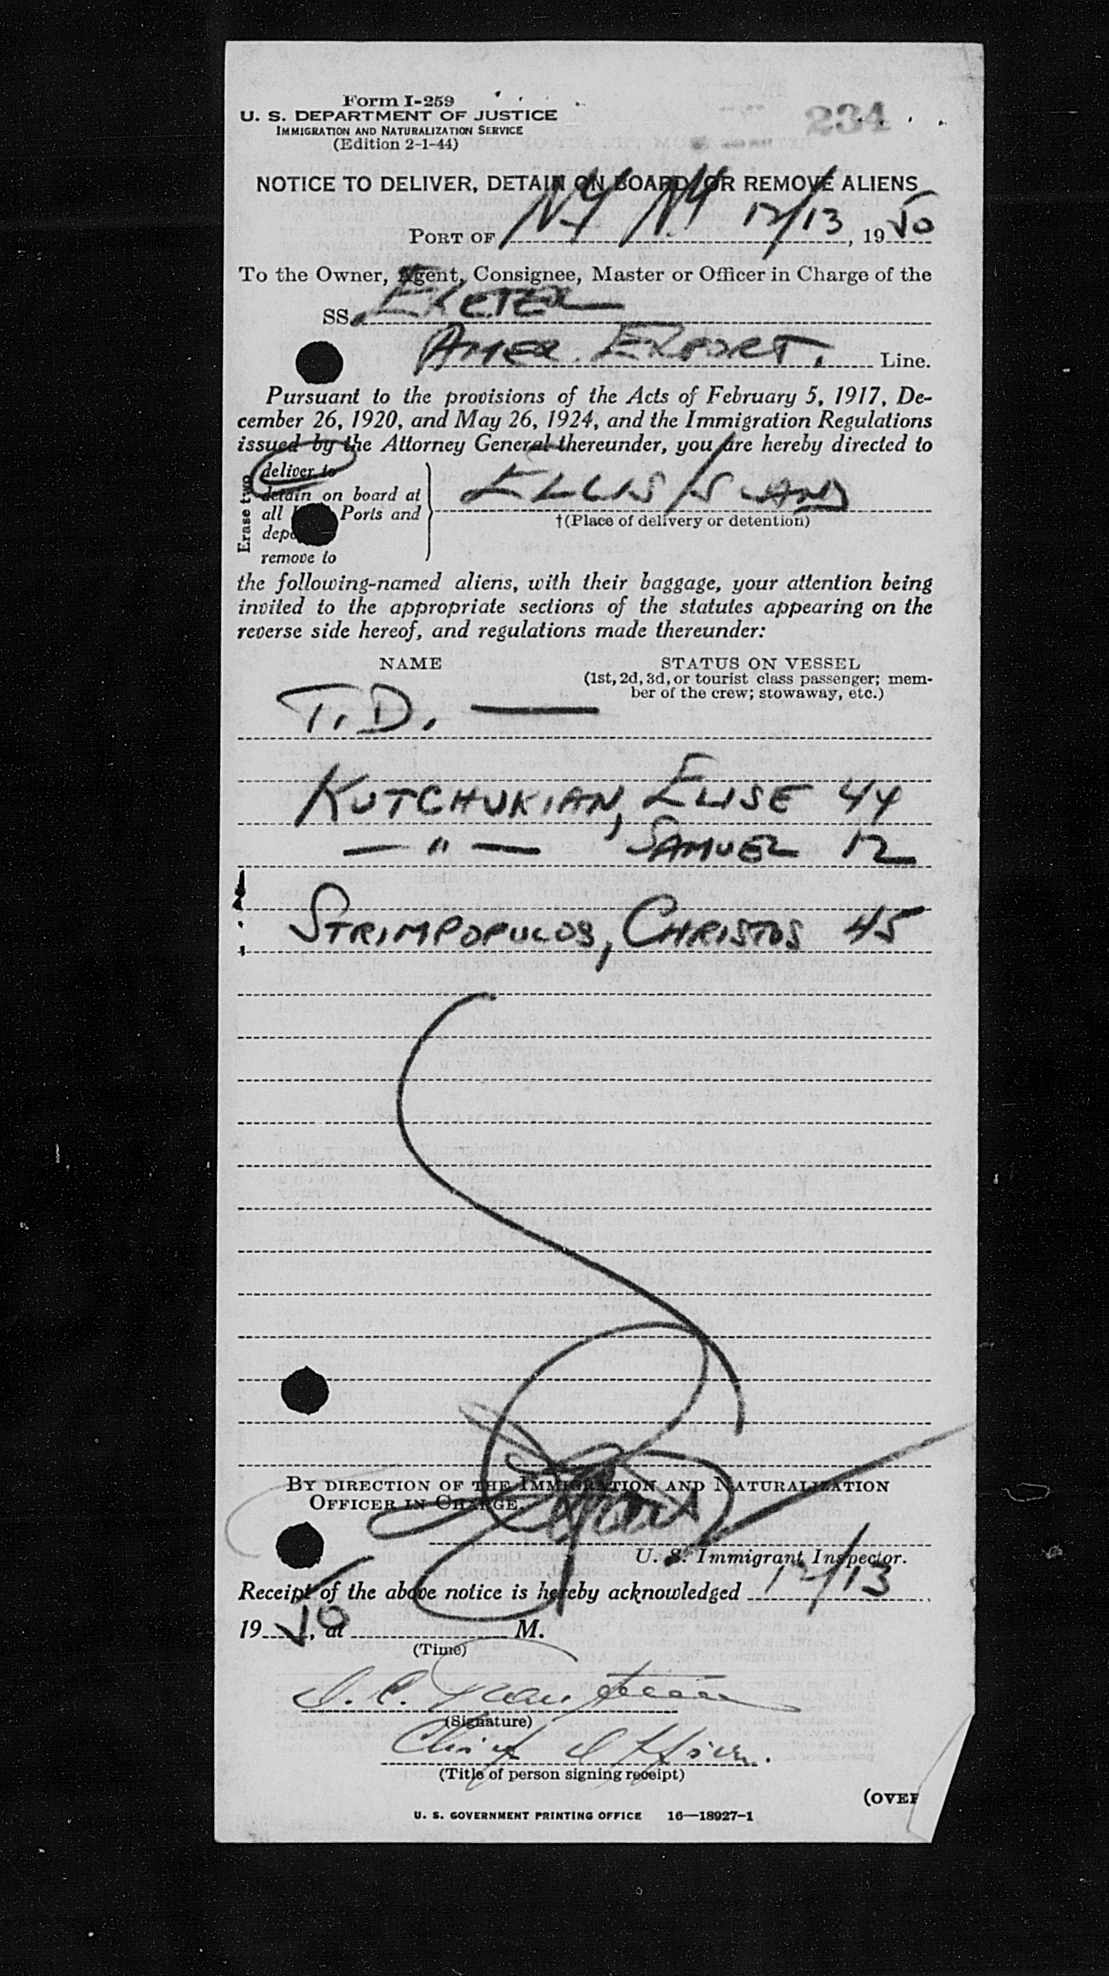 Form I-259
U. S. DEPARTMENT OF JUSTICE
IMMIGRATION AND NATURALIZATION SERVICE
(Edition 2-1-44)
234
NOTICE TO DELIVER, DETAIN ON BOARD, OR REMOVE ALIENS
PORT OF NY NY 12/13, 1950
To the Owner, Agent, Consignee, Master or Officer in Charge of the
SS. EXETER
AMER. EXPORT. Line.
Pursuant to the provisions of the Acts of February 5, 1917, De-
cember 26, 1920, and May 26, 1924, and the Immigration Regulations
issued by the Attorney General thereunder, you are hereby directed to
Erase two
deliver to
detain on board at
all Ports and
remove to
ELLIS ISLAND
†(Place of delivery or detention)
the following-named aliens, with their baggage, your attention being
invited to the appropriate sections of the statutes appearing on the
reverse side hereof, and regulations made thereunder:
NAME
STATUS ON VESSEL
(1st, 2d, 3d, or tourist class passenger; mem-
ber of the crew; stowaway, etc.)
T. D. —
KUTCHUKIAN, ELISE 44
— " — SAMUEL 12
STRIMPOPULOS, CHRISTOS 45
BY DIRECTION OF THE IMMIGRATION AND NATURALIZATION
OFFICER IN CHARGE.
U. S. Immigrant Inspector.
Receipt of the above notice is hereby acknowledged 12/13
1950, at M.
(Time)
(Signature)
Chief Officer.
(Title of person signing receipt)
(OVER
U. S. GOVERNMENT PRINTING OFFICE 16—18927-1